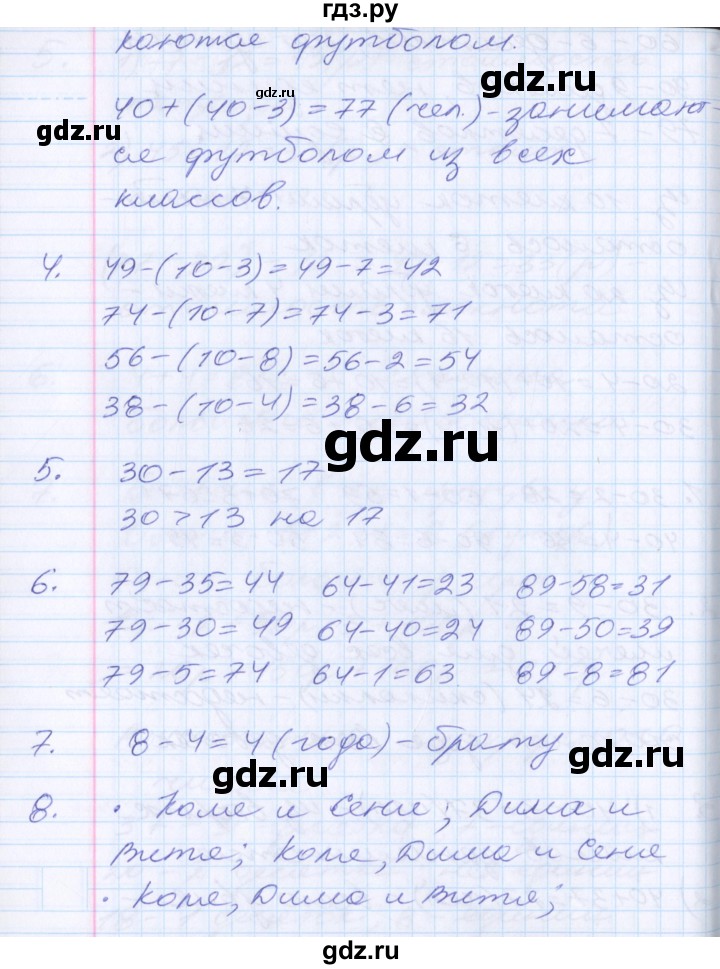 гдз.ру
каютае футболом.
40+(40-3)=77 (чел.)-занимают
gdz.ru
gdz.ru
gdz.ru
ся футболом из всех
классов.
4. 49-(10-3)=49-7=42
74-(10-7)=74-3=71
56-(10-8)=56-2=54
38-(10-4)=38-6=32
gdz.ru
5. 30-13=17
30>13 на 17
6. 79-35=44 64-41=23 89-58=31
79-30=49 64-40=24 89-50=39
79-5=74 64-1=63 89-8=81
7. 8-4=4 (года)-брату
gdz.ru
gdz.ru
8. · Коля и Сеня; Дима и
Витя; Коля, Дима и Сеня
· Коля, Дима и Витя;
gdz.ru
gdz.ru
gdz.ru